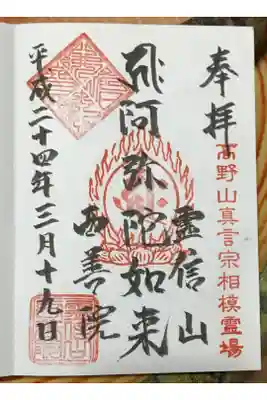 奉拝
高野山真言宗相模霊場
阿弥陀如来
霊信山
西善院
平成二十四年三月十九日